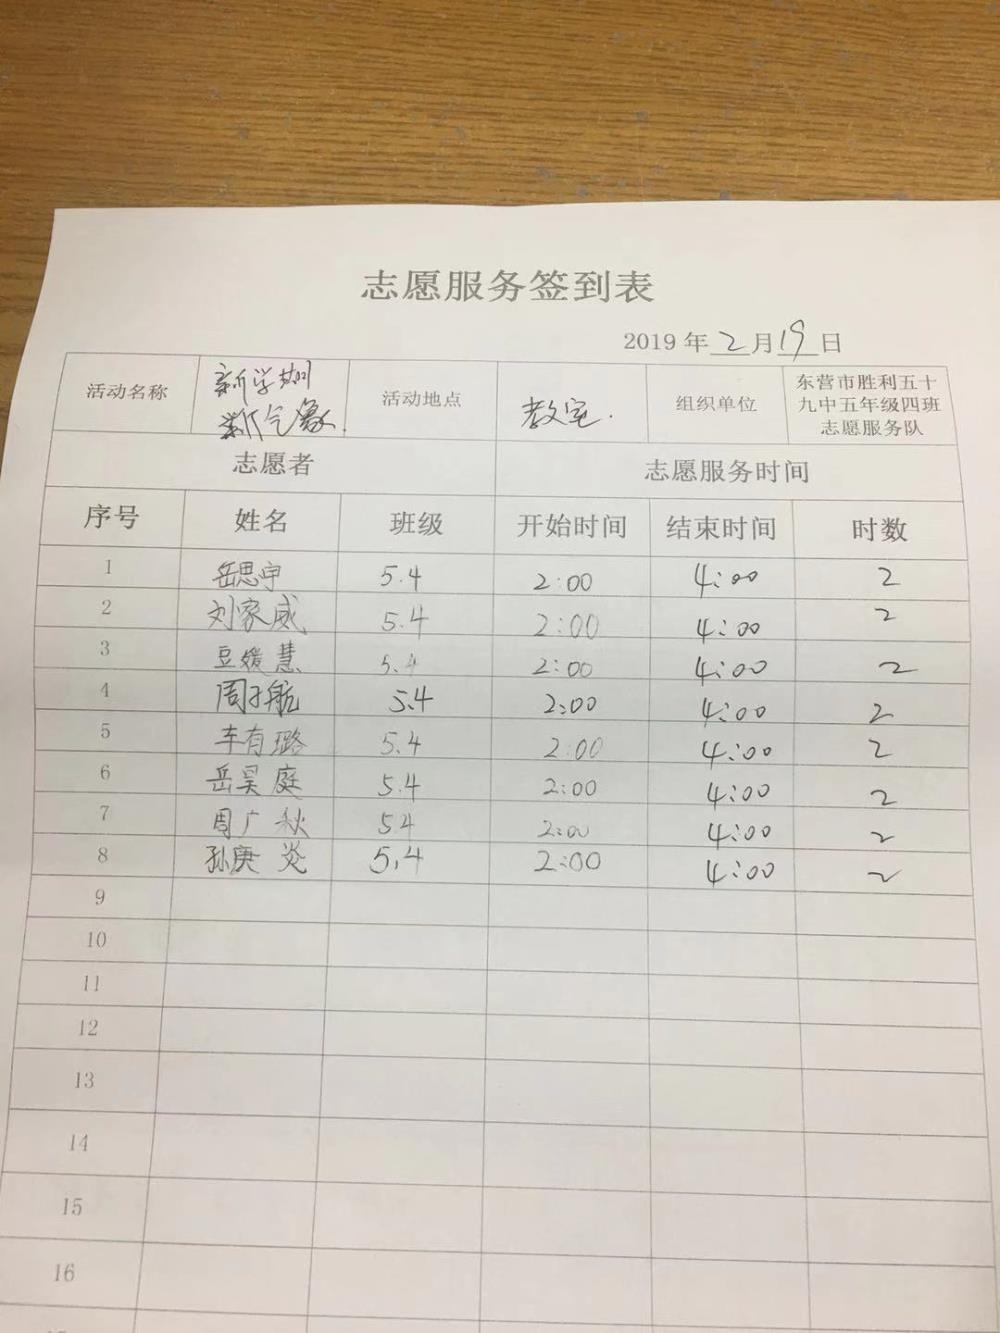 志愿服务签到表
2019 年 2 月 19 日
活动名称 新学期 新气象. 活动地点 教室. 组织单位 东营市胜利五十
九中五年级四班
志愿服务队
志愿者 志愿服务时间
序号 姓名 班级 开始时间 结束时间 时数
1 岳思宇 5.4 2:00 4:00 2
2 刘家威 5.4 2:00 4:00 2
3 豆媛慧 5.4 2:00 4:00 2
4 周子航 5.4 2:00 4:00 2
5 车有璐 5.4 2:00 4:00 2
6 岳昊庭 5.4 2:00 4:00 2
7 周广秋 5.4 2:00 4:00 2
8 孙庚炎 5.4 2:00 4:00 2
9
10
11
12
13
14
15
16